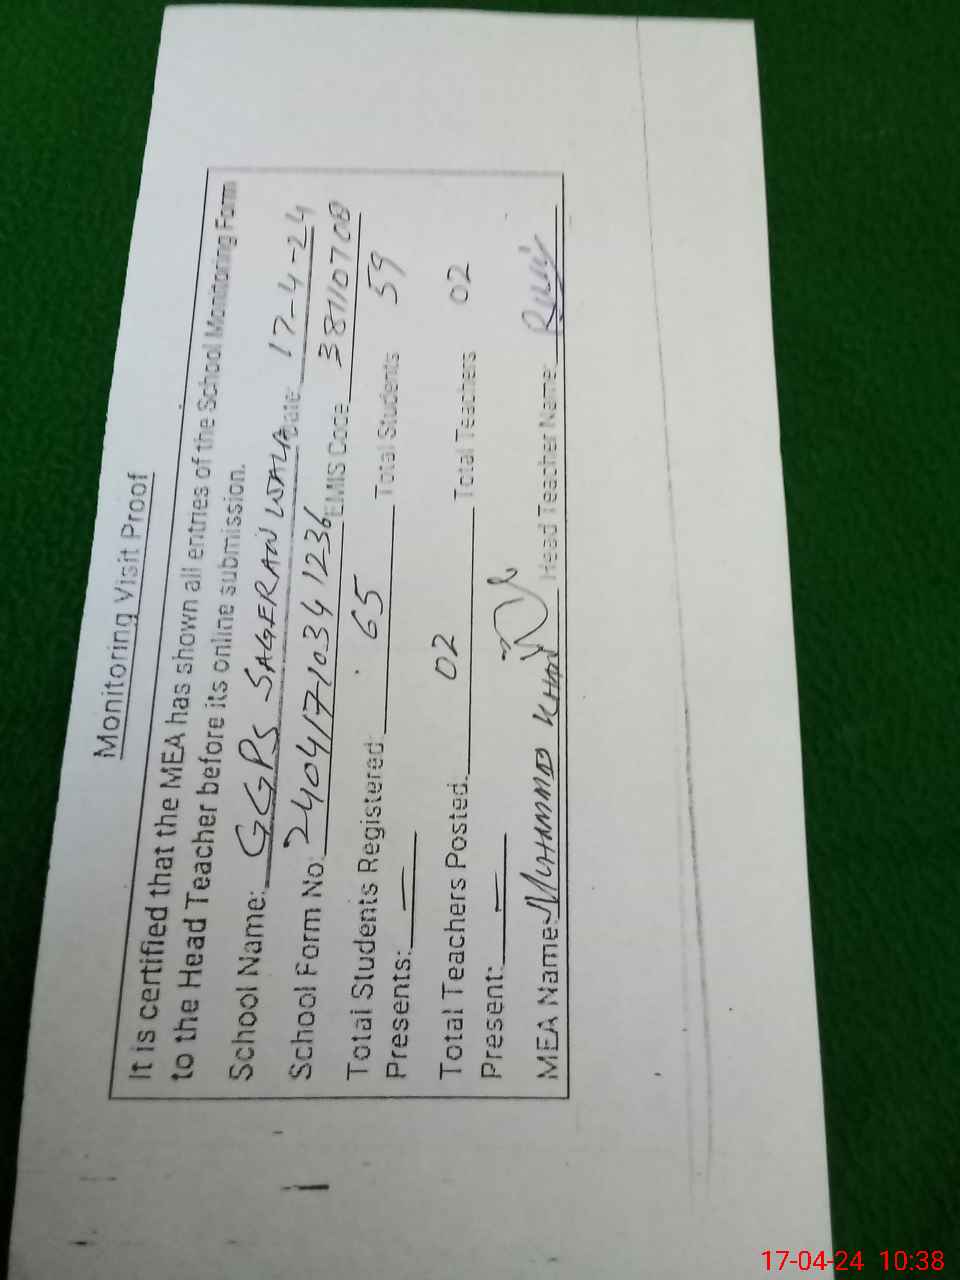 Monitoring Visit Proof
It is certified that the MEA has shown all entries of the School Monitoring Form
to the Head Teacher before its online submission.
School Name: GGPS SAGGERAN WALA Date: 17-4-24
School Form No: 24041710341236 EMIS Code 38110708
Total Students Registered: 65 Total Students 59
Presents: —
Total Teachers Posted. 02 Total Teachers 02
Present: —
MEA Name: MUHAMMD KHAN Head Teacher Name:
17-04-24 10:38